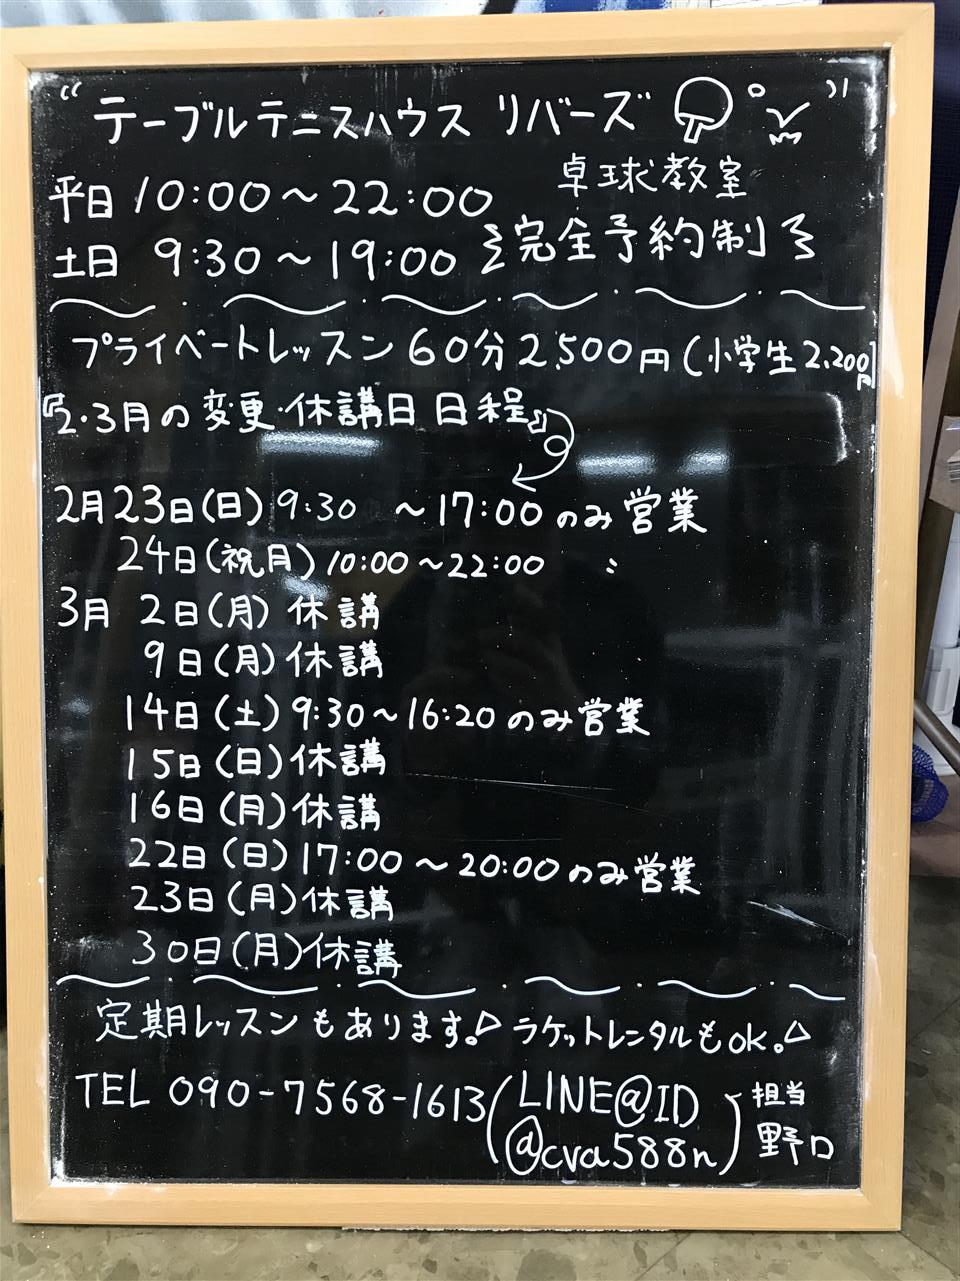 “テーブルテニスハウス リバーズ”
卓球教室
平日 10:00～22:00
土日 9:30～19:00 完全予約制
プライベートレッスン 60分 2,500円 (小学生2,200円)
『2・3月の変更・休講日 日程』
2月23日(日) 9:30 ～17:00 のみ営業
24日(祝月) 10:00～22:00 〃
3月 2日(月) 休講
9日(月) 休講
14日(土) 9:30～16:20 のみ営業
15日(日) 休講
16日(月) 休講
22日(日) 17:00～20:00 のみ営業
23日(月) 休講
30日(月) 休講
定期レッスンもあります。ラケットレンタルもOK。
TEL 090-7568-1613 (LINE@ID @cva588n) 担当 野口